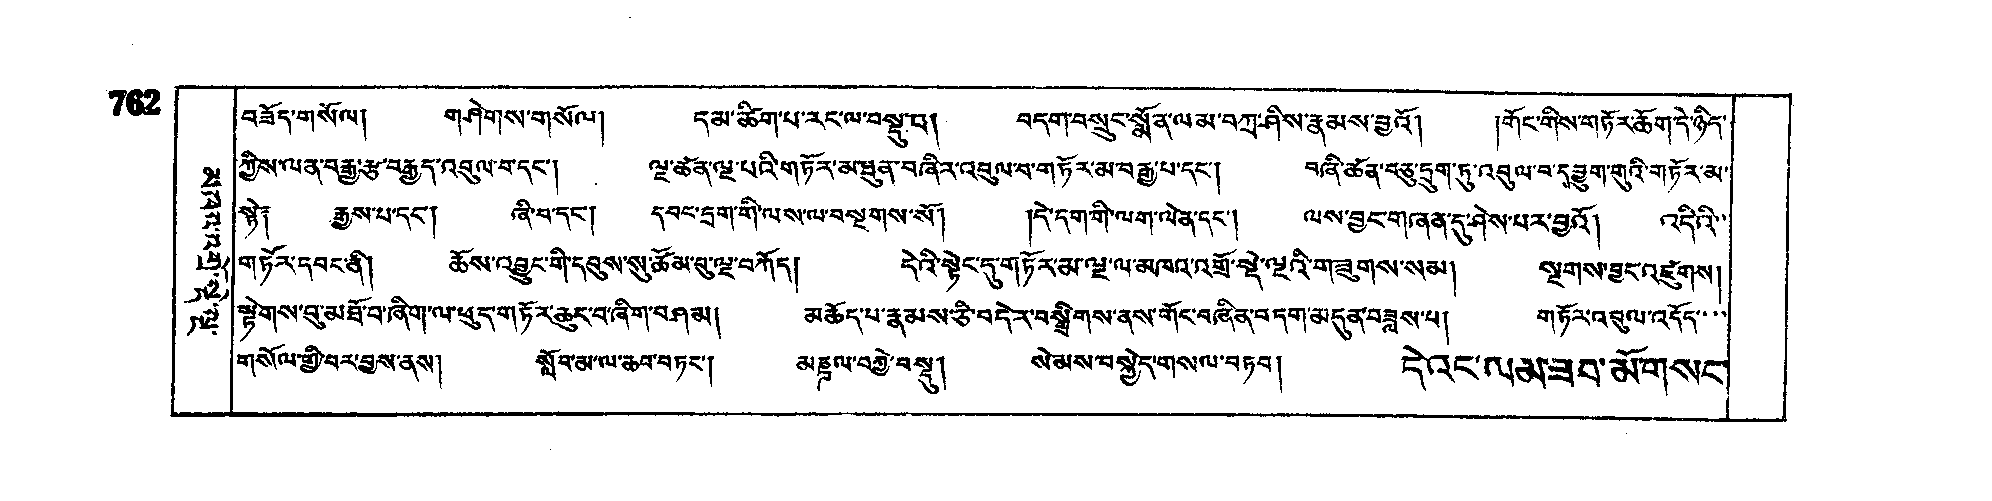 762
བཟོད་གསོལ། གཤེགས་གསོལ། དམ་ཚིག་པ་རང་ལ་བསྡུ་བ། བདག་བསྲུང་སྨོན་ལམ་བཀྲ་ཤིས་རྣམས་བྱའོ། །གོང་གིས་གཏོར་ཆོག་དེ་ཉིད་
ཀྱིས་ལན་བརྒྱ་རྩ་བརྒྱད་འབུལ་བ་དང་། ལྔ་ཚན་ལྔ་པའི་གཏོར་མ་ཐུན་བཞིར་འབུལ་བ་གཏོར་མ་བརྒྱ་པ་དང་། བཞི་ཚོན་བཅུ་དྲུག་ཏུ་འབུལ་བ་དབྱུག་གུའི་གཏོར་མ་
སྟེ། རྒྱས་པ་དང་། ཞི་བ་དང་། དབང་དྲག་གི་ལས་ལ་བསྔགས་སོ། །དེ་དག་གི་ལག་ལེན་དང་། ལས་བྱང་གཞན་དུ་ཤེས་པར་བྱའོ། འདིའི་
གཏོར་དབང་ནི། ཆོས་འབྱུང་གི་དབུས་སུ་ཚོམ་བུ་ལྔ་བཀོད། དེའི་སྟེང་དུ་གཏོར་མ་ལྔ་ལ་མཁའ་འགྲོ་སྡེ་ལྔའི་གཟུགས་སམ། སྔགས་བྱང་འཛུགས།
སྟེགས་བུ་མཐོ་བ་ཞིག་ལ་ཕུད་གཏོར་ཆུང་བ་ཞིག་བཤམ། མཆོད་པ་རྣམས་ཅི་བདེར་བསྒྲིགས་ནས་གོང་བཞིན་བདག་མདུན་བཟླས་པ། གཏོར་འབུལ་འདོད་
གསོལ་གྱི་བར་བྱས་ནས། སློབ་མ་ལ་ཆབ་བཏང་། མཎྜལ་བཀྱེ་བསྡུ། སེམས་བསྐྱེད་གསལ་བཏབ། དེའང་ལམ་ཟབ་མོ་གསང་